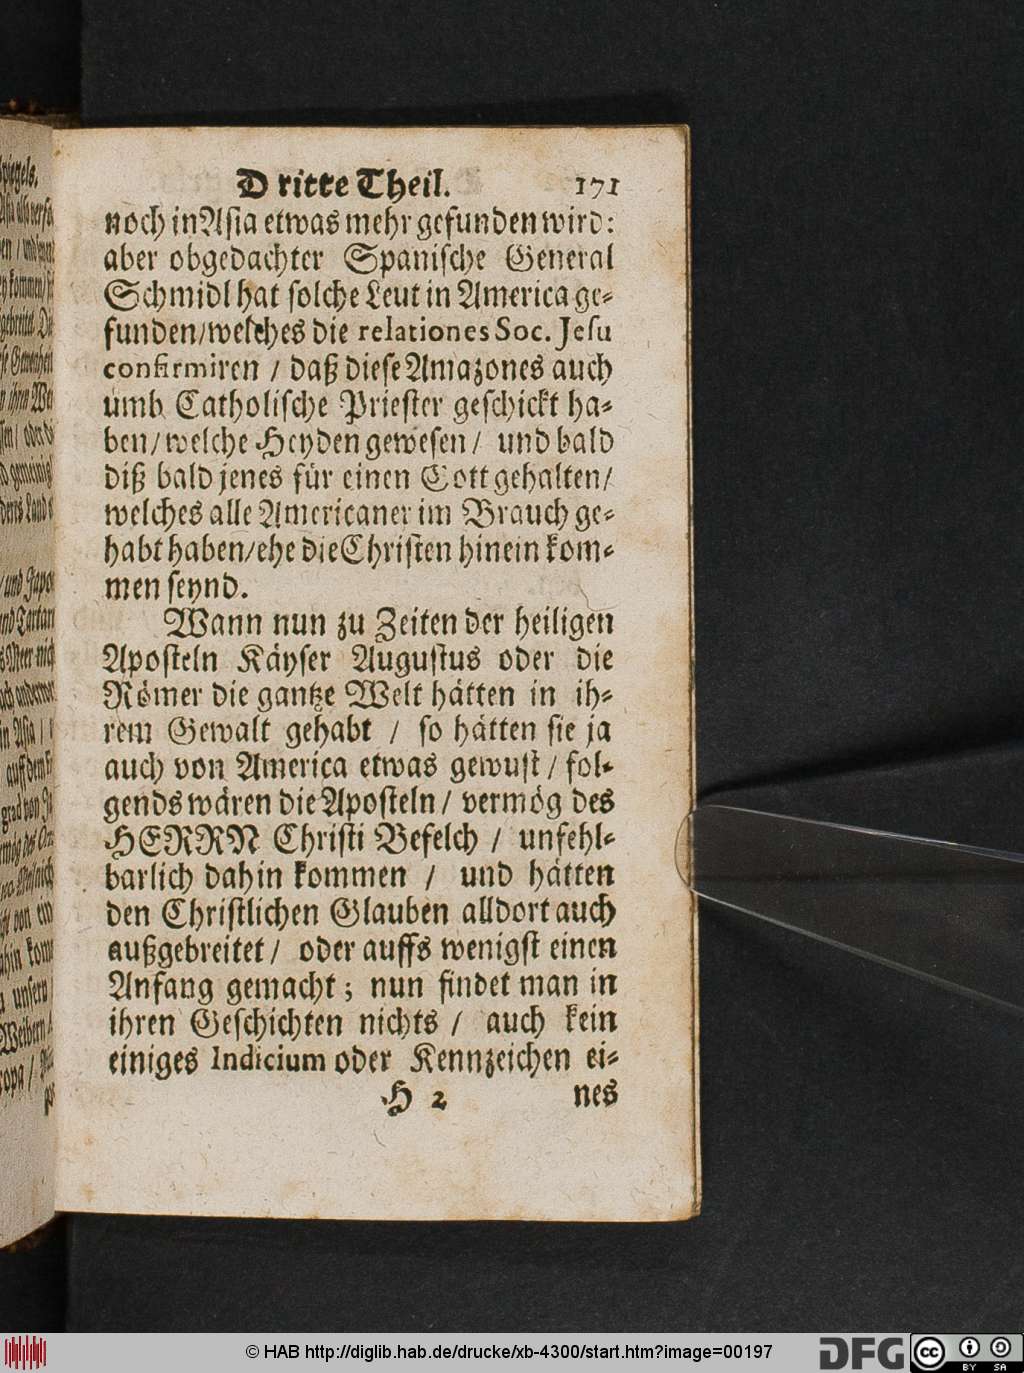 Dritte Theil. 171
noch in Asia etwas mehr gefunden wird:
aber obgedachter Spanische General
Schmidl hat solche Leut in America ge-
funden/welches die relationes Soc. Jesu
confirmiren / daß diese Amazones auch
umb Catholische Priester geschickt ha-
ben/welche Heyden gewesen / und bald
diß bald jenes für einen Gott gehalten/
welches alle Americaner im Brauch ge-
habt haben/ehe die Christen hinein kom-
men seynd.
Wann nun zu Zeiten der heiligen
Aposteln Käyser Augustus oder die
Römer die gantze Welt hätten in ih-
rem Gewalt gehabt / so hätten sie ja
auch von America etwas gewust / fol-
gends wären die Aposteln / vermög des
HERRN Christi Befelch / unfehl-
barlich dahin kommen / und hätten
den Christlichen Glauben alldort auch
außgebreitet / oder auffs wenigst einen
Anfang gemacht; nun findet man in
ihren Geschichten nichts / auch kein
einiges Indicium oder Kennzeichen ei-
H 2 nes
© HAB http://diglib.hab.de/drucke/xb-4300/start.htm?image=00197
DFG
cc BY SA